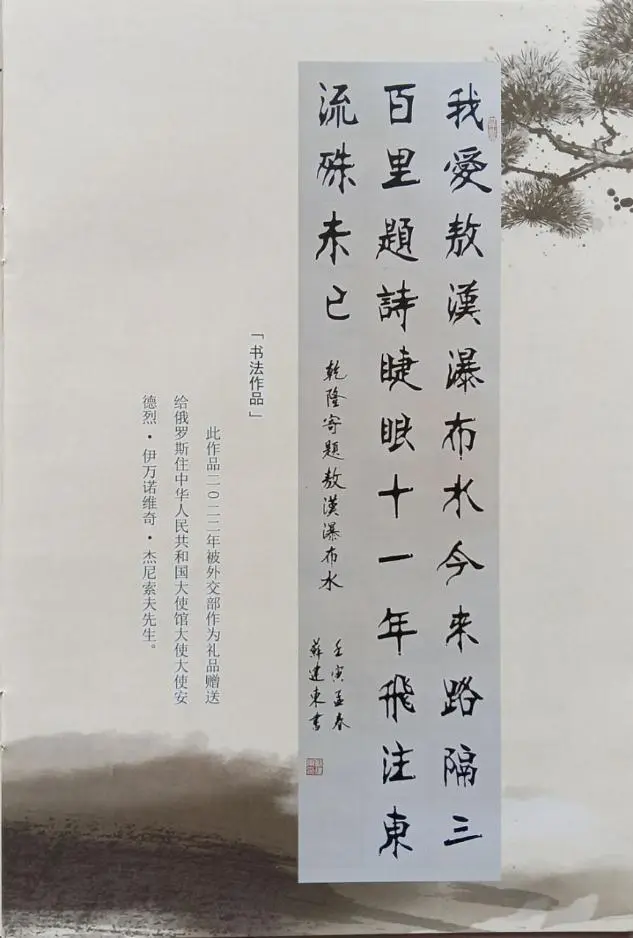 我愛敖漢瀑布水今来路隔三
百里題詩睫眼十一年飛注東
流殊未已
乾隆寄題敖漢瀑布水
壬寅孟春
蘇建東書
「书法作品」
此作品二〇二二年被外交部作为礼品赠送
给俄罗斯住中华人民共和国大使馆大使大使安
德烈·伊万诺维奇·杰尼索夫先生。